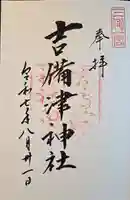 奉拝
吉備津神社
令和七年八月廿一日